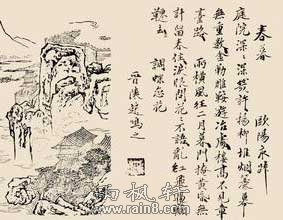 春暮
歐陽永叔
庭院深深深幾許楊柳堆烟簾幕
無重數金勒雕鞍遊冶處樓高不見章
臺路 雨橫風狂三月暮門掩黃昏無
計留春住淚眼問花花不語亂紅
鞦韆去 調蝶恋花
雨枫轩
www.rain8.com